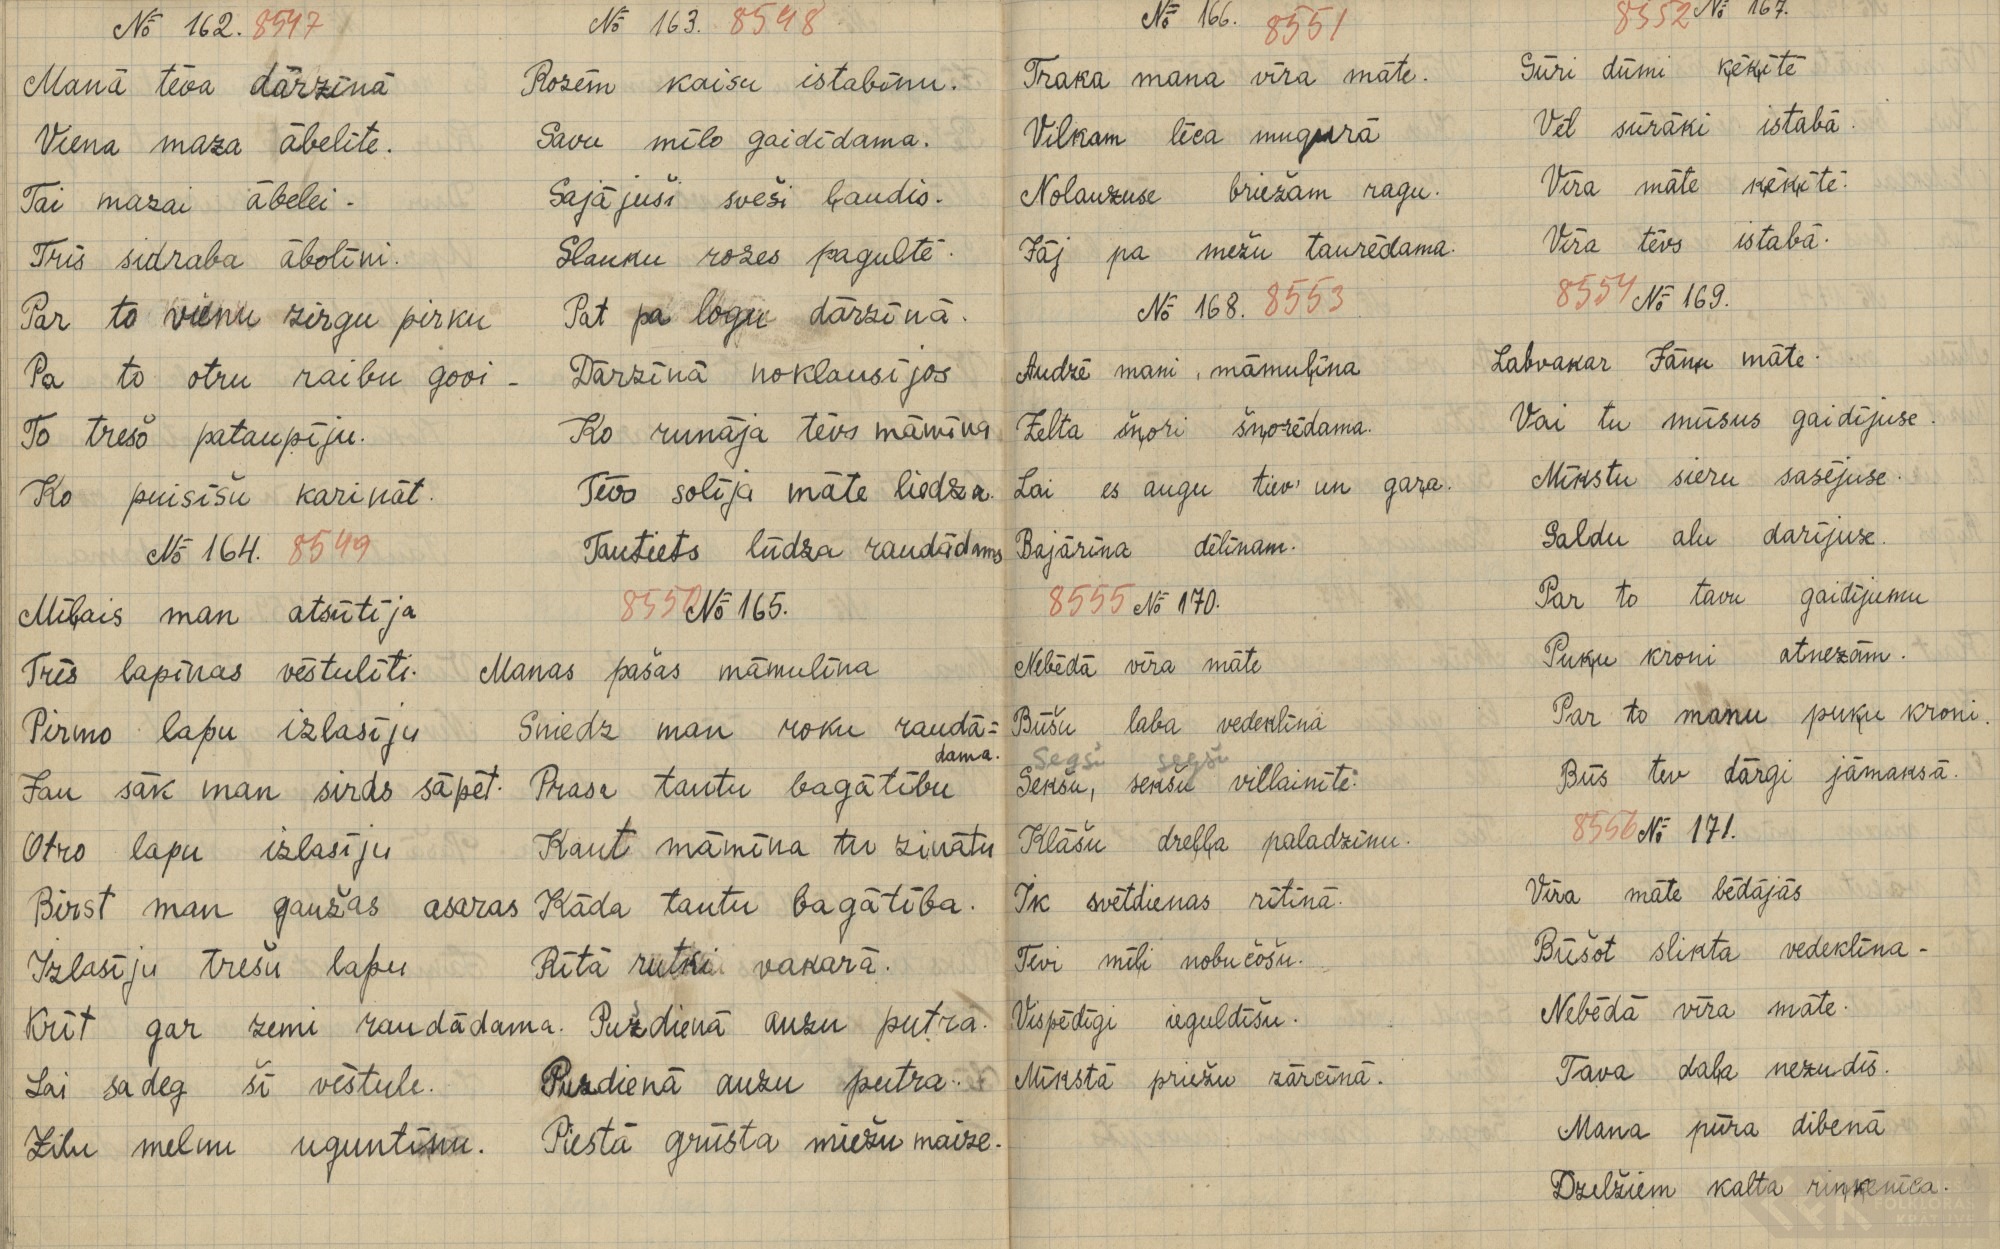 № 162. 8547
Manā tēva dārzīnā
Viena maza ābelīte.
Tai mazai ābelei -
Trīs sidraba ābolīni.
Par to vienu zirgu pirku
Pa to otru raibu govi -
To trešo pataupīju.
Ko puisīšu karināt.
№ 164. 8549
Mīļais man atsūtīja
Trīs lapīnas vēstulīti.
Pirmo lapu izlasīju
Jau sāk man sirds sāpēt.
Otro lapu izlasīju
Birst man gaužas asaras
Izlasīju trešu lapu
Krīt gar zemi raudādama.
Lai sadeg šī vēstule.
Zilu melnu uguntīnu.
№ 163. 8548
Rozēm kaisu istabīnu.
Savu mīlo gaidīdama.
Sajājuši sveši ļaudis.
Slauku rozes pagultē.
Pat pa logu dārzīnā.
Dārzīnā noklausījos
Ko runāja tēvs māmīna
Tēvs solīja māte liedza.
Tautiets lūdza raudādams
8550 № 165.
Manas pašas māmulīna
Sniedz man roku raudā=
dama.
Prasa tautu bagātību
Kaut māmīna tu zinātu
Kāda tautu bagātība.
Rītā rutki vakarā.
Puzdienā auzu putra.
Puzdienā auzu putra.
Piestā grūsta miežu maize.
№ 166. 8551
Traka mana vīra māte.
Vilkam lēca mugurā
Nolauzuse briežam ragu.
Jāj pa mežu taurēdama.
№ 168. 8553
Audzē mani, māmuļīna
Zelta šņori šņorēdama.
Lai es augu tiev' un gaŗa.
Bajārīna dēlīnam.
8555 № 170.
Nebēdā vīra māte
Būšu laba vedeklīna
Segšu segšu
Sekšu, sekšu villainīte.
Klāšu dreļļa paladzīnu.
Ik svētdienas rītīnā.
Tevi mīļi nobučošu.
Vispēdīgi ieguldīšu.
Mīkstā priežu zārcīnā.
8552 № 167.
Sūri dūmi ķēķītē
Vēl sūrāki istabā.
Vīra māte ķēķītē.
Vīra tēvs istabā.
8554 № 169.
Labvakar Jāņu māte.
Vai tu mūsus gaidījuse.
Mīkstu sieru sasējuse.
Saldu alu darījuse.
Par to tavu gaidījumu
Puķu kroni atnezām.
Par to manu puķu kroni.
Būs tev dārgi jāmaksā.
8556 № 171.
Vīra māte bēdājās
Būšot slikta vedeklīna -
Nebēdā vīra māte.
Tava daļa nezudīs.
Mana pūra dibenā
Dzelžiem kalta riņķenīca.
FOLKLORAS
KRĀTUVE